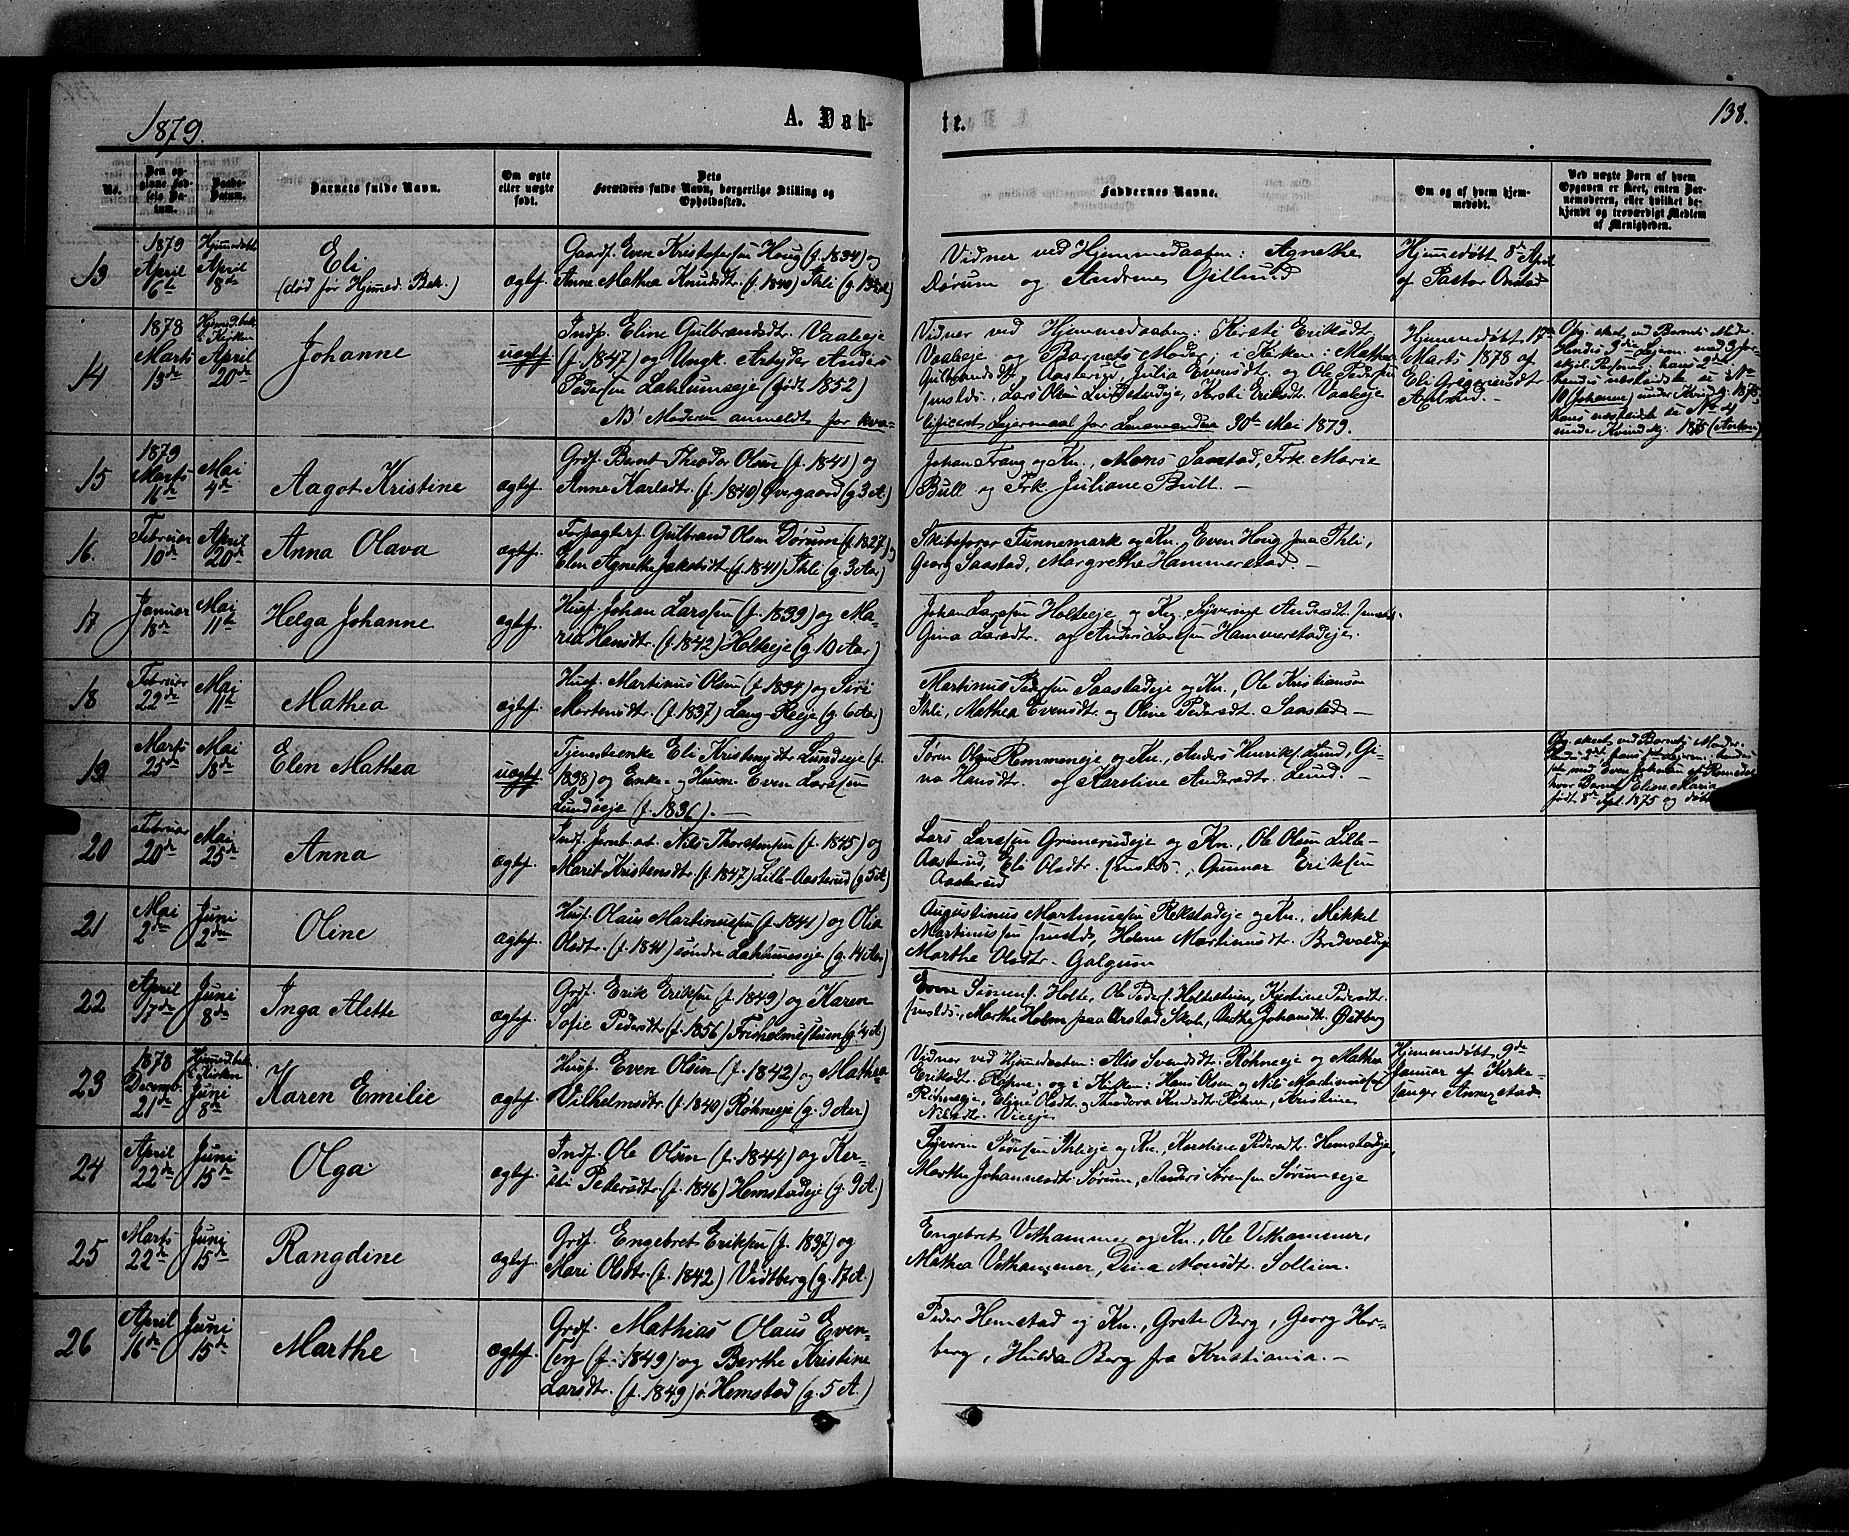 1879.
A. Døb-
te.
138.
No.
Den op-
givne Fød-
sels Da-
tum.
Daabs-
Datum.
Barnets fulde Navn.
Om ægte
eller uægte
født.
Dets
Forældres fulde Navn, borgerlige Stilling og
Opholdssted.
Faddernes Navne.
Om og af hvem hjem-
medøbt.
Ved uægte Børn af hvem
Opgaven er skeet, enten Bar-
nemoderen, eller hvilket be-
kjendt og troværdigt Medlem
af Menigheden.
13
1879
April
6te
Hjemmedøbt
April
8de
Eli
(død før Hjemmed. Bek.)
ægtef.
Gaardf. Even Kristofersen Houg (f. 1834) og
Anne Mathea Knudsdtr. (f. 1840) Ihli
Vidner ved Hjemmedaaben: Agnethe
Dørum og Andrine Gillund
Hjemmedøbt 8de April
af Pastor Onstad
14
1878
Marts
13de
Hjemmed. bek.
i Kirken
April
20de
Johanne
uægtef.
Indf. Eline Gulbrandsdtr. Vaaleeje
(f. 1847) og Ungk. Arbejder Anders
Pedersen Laklumseje (født 1852)
NB! Moderen anmeldt for kva-
Vidner ved Hjemmedaaben: Kirsti Eriksdtr.
Vaaleeje og Barnets Moder; i Kirken: Mathea
Gulbrandsdtr. Aasterud, Julia Evensdtr. og Ole Pedersen
smstds., Lars Olsen Kirsti Eriksdtr. Vaaleeje
lificeret Lejermaal for Lensmanden 30te Mai 1879.
Hjemmedøbt 17de
Marts 1878 af
Eli Gregoriusdtr.
Opg. skeet ved Barnets Moder.
Hendes 3die Lejerm. med 3 for-
skjel. Personer, hans 2det
hendes næstsidste se No
10 (Johanne) under Kvindkj. 1873
hans næstsidste se No 4
under Kvindkj. (Anton)
15
1879
Marts
16de
Mai
4de
Aagot Kristine
ægtef.
Grdf. Bernt Theodor Olsen (f. 1841) og
Anne Karlsdtr. (f. 1840) Øvergaard (g. 3 A.)
Johan Frang og Kn., Mons Saastad, Frk. Marie
Bull og Frk. Juliane Bull. —
16.
Februar
10de
April
20de
Anna Olava
ægtef.
Forpagterf. Gulbrand Olsen Dørum (f. 1827) og
Elen Agnethe Jakobsdtr. (f. 1841) Ihli (g. 3 Aar)
Skibsfører Tunnemark og Kn., Even Houg fra Ihli,
Georg Saastad, Margrethe Hammerstad. —
17
Januar
18de
Mai
11te
Helga Johanne
ægtef.
Husf. Johan Larssen (f. 1839) og Ma-
rea Hansdtr. (f. 1842) Holteeje (g. 10 Aar)
Johan Larssen Holteeje og Kn., Syverine Andersdtr. smstds.
Gina Larsdtr. og Anders Larssen Hammerstadeje.
18
Februar
22de
Mai
11te
Mathea
ægtef.
Husf. Martinus Olsen (f. 1834) og Siri
Mortensdtr. (f. 1837) Lang-Reeje (g. 6 Aar)
Martinus Pedersen Saastadeje og Kn., Ole Kristiansen
Ihli, Mathea Evensdtr. og Oline Pedersdt. Saastad —
19
Marts
25de
Mai
18de
Elen Mathea
uægtef.
Tjenesteenke Eli Kristensdtr. Lundseje (f.
1838) og Enke- og Husm. Even Larssen
Lundseje (f. 1836). —
Søren Olsen Rommeneje og Kn., Anders Henriks. Lund, Gi-
na Hansdtr. og Karoline Andersdtr. Lund. —
Opg. skeet ved Barnets Moder.
hvor Barnet Eline Maria
født 8de Sept. 1875 og døbt
20
Februar
20de
Mai
25de
Anna
ægtef.
Indf. Jernb. arb. Nils Thorstensen (f. 1845) og
Marit Kristensdtr. (f. 1847) Lille-Aasterud (g 5 A)
Lars Larssen Grimerudeje og Kn., Ole Olsen Lille-
Aasterud, Eli Olsdtr. smstds., Gunnar Eriksen
Aasterud
21
Mai
2den
Juni
2den
Oline
ægtef.
Husf. Olaus Martinussen (f. 1841) og Olia
Olsdtr. (f. 1841) søndre Laklumseje (g. 14 Aar)
Augustinus Martinussen Rekstadeje og Kn., Mikkel
Martinussen smstds, Helene Martinusdtr. Bredvoldeje
Marthe Olsdtr. Galgum
22
April
17de
Juni
8de
Inga Alette
ægtef.
Grdf. Erik Eriksen (f. 1849) og Karen
Sofie Pedersdtr. (f. 1856) Friholmestuen (g. 4 A)
Even Simens. Holte, Ole Peders. Holtestuen, Kjestine Pedersdtr.
smstds., Marthe Holm paa Arstad Skole, Berthe Johansdtr. Østberg
23
1878
Decemb.
21de
Hjemmed. bek.
i Kirken
Juni
8de
Karen Emilie
ægtef.
Husf. Even Olsen (f. 1842) og Mathea
Wilhelmsdtr. (f. 1840) Røhneeje (g. 9 Aar)
Vidner ved Hjemmedaaben: Alis Svendsdtr. Røhneeje og Mathea
Eriksdtr. Røhne. og i Kirken: Hans Olsen og Nils Martinussen
Røhneeje, Eline Olsdtr. og Theodora Knudsdtr. Røhne, Kristine
Nilsdtr. Viseje.
Hjemmedøbt 9de
Januar af Kirke-
sanger Annexstad
24
April
22de
Juni
15de
Olga
ægtef.
Indf. Ole Olsen (f. 1844) og Ker-
sti Petersdtr. (f. 1846) Hemstadeje (g. 9 A.)
Syverin Ihlieje og Kn., Karoline Pedersdt. Hemstadeje,
Marthe Johannesdtr. Sørum, Anders Sørensen Sørumseje
25
Marts
22de
Juni
15de
Rangdine
ægtef.
Grdf. Engebret Eriksen (f. 1837) og
Mari Olsdtr. (f. 1842) Vidtberg (g. 17 A.)
Engebret Vethammer og Kn., Ole Vethammer,
Mathea Vethammer, Dina Monsdt. Sollien.
26
April
16de
Juni
15de
Marthe
ægtef.
Grdf. Mathias Olaus Even-
sen (f. 1849) og Berthe Kristine
Larsdtr. (f. 1849) ø. Hemstad (g. 5 A.)
Peder Hemstad og Kn., Grete Berg, Georg Her-
berg, Hulda Berg fra Kristiania. —